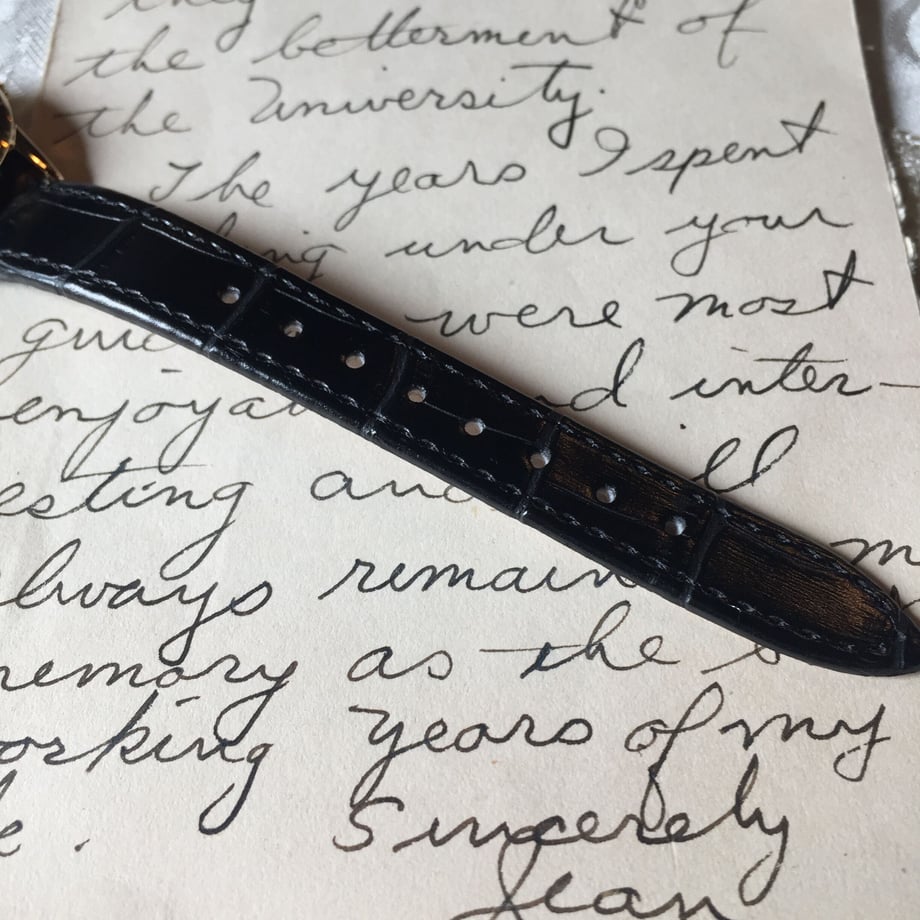 they
the betterment of
the University.
The years I spent
under your
were most
inter-
esting and
always remain
memory as the
working years of my
Sincerely
Jean